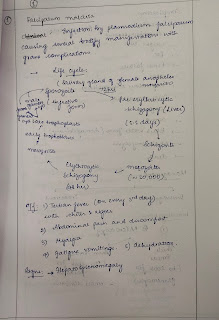 ①
① Falciparum malaria
Infection by plasmodium falciparum
causing several bodily manifestations with
grave complications
→ Life cycle:
(salivary gland of female anopheles
mosquito)
Sporozoite
(infective form)
Bite
Pre erythrocytic
schizogony (Liver)
days)
Schizonts
merozoites
Erythrocytic
schizogony
(48 hrs)
merozoites
early trophozoites
trophozoites
1) Tertian fever (on every 3rd day)
with chills & rigors
2) Abdominal pain and discomfort
3) Myalgia
4) Fatigue, vomitings 5) dehydration.
Signs:- Hepatosplenomegaly